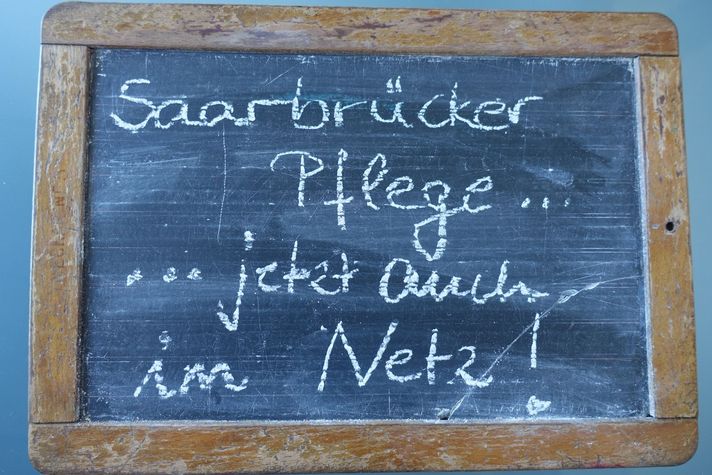 Saarbrücker
Pflege...
... jetzt auch
im Netz!